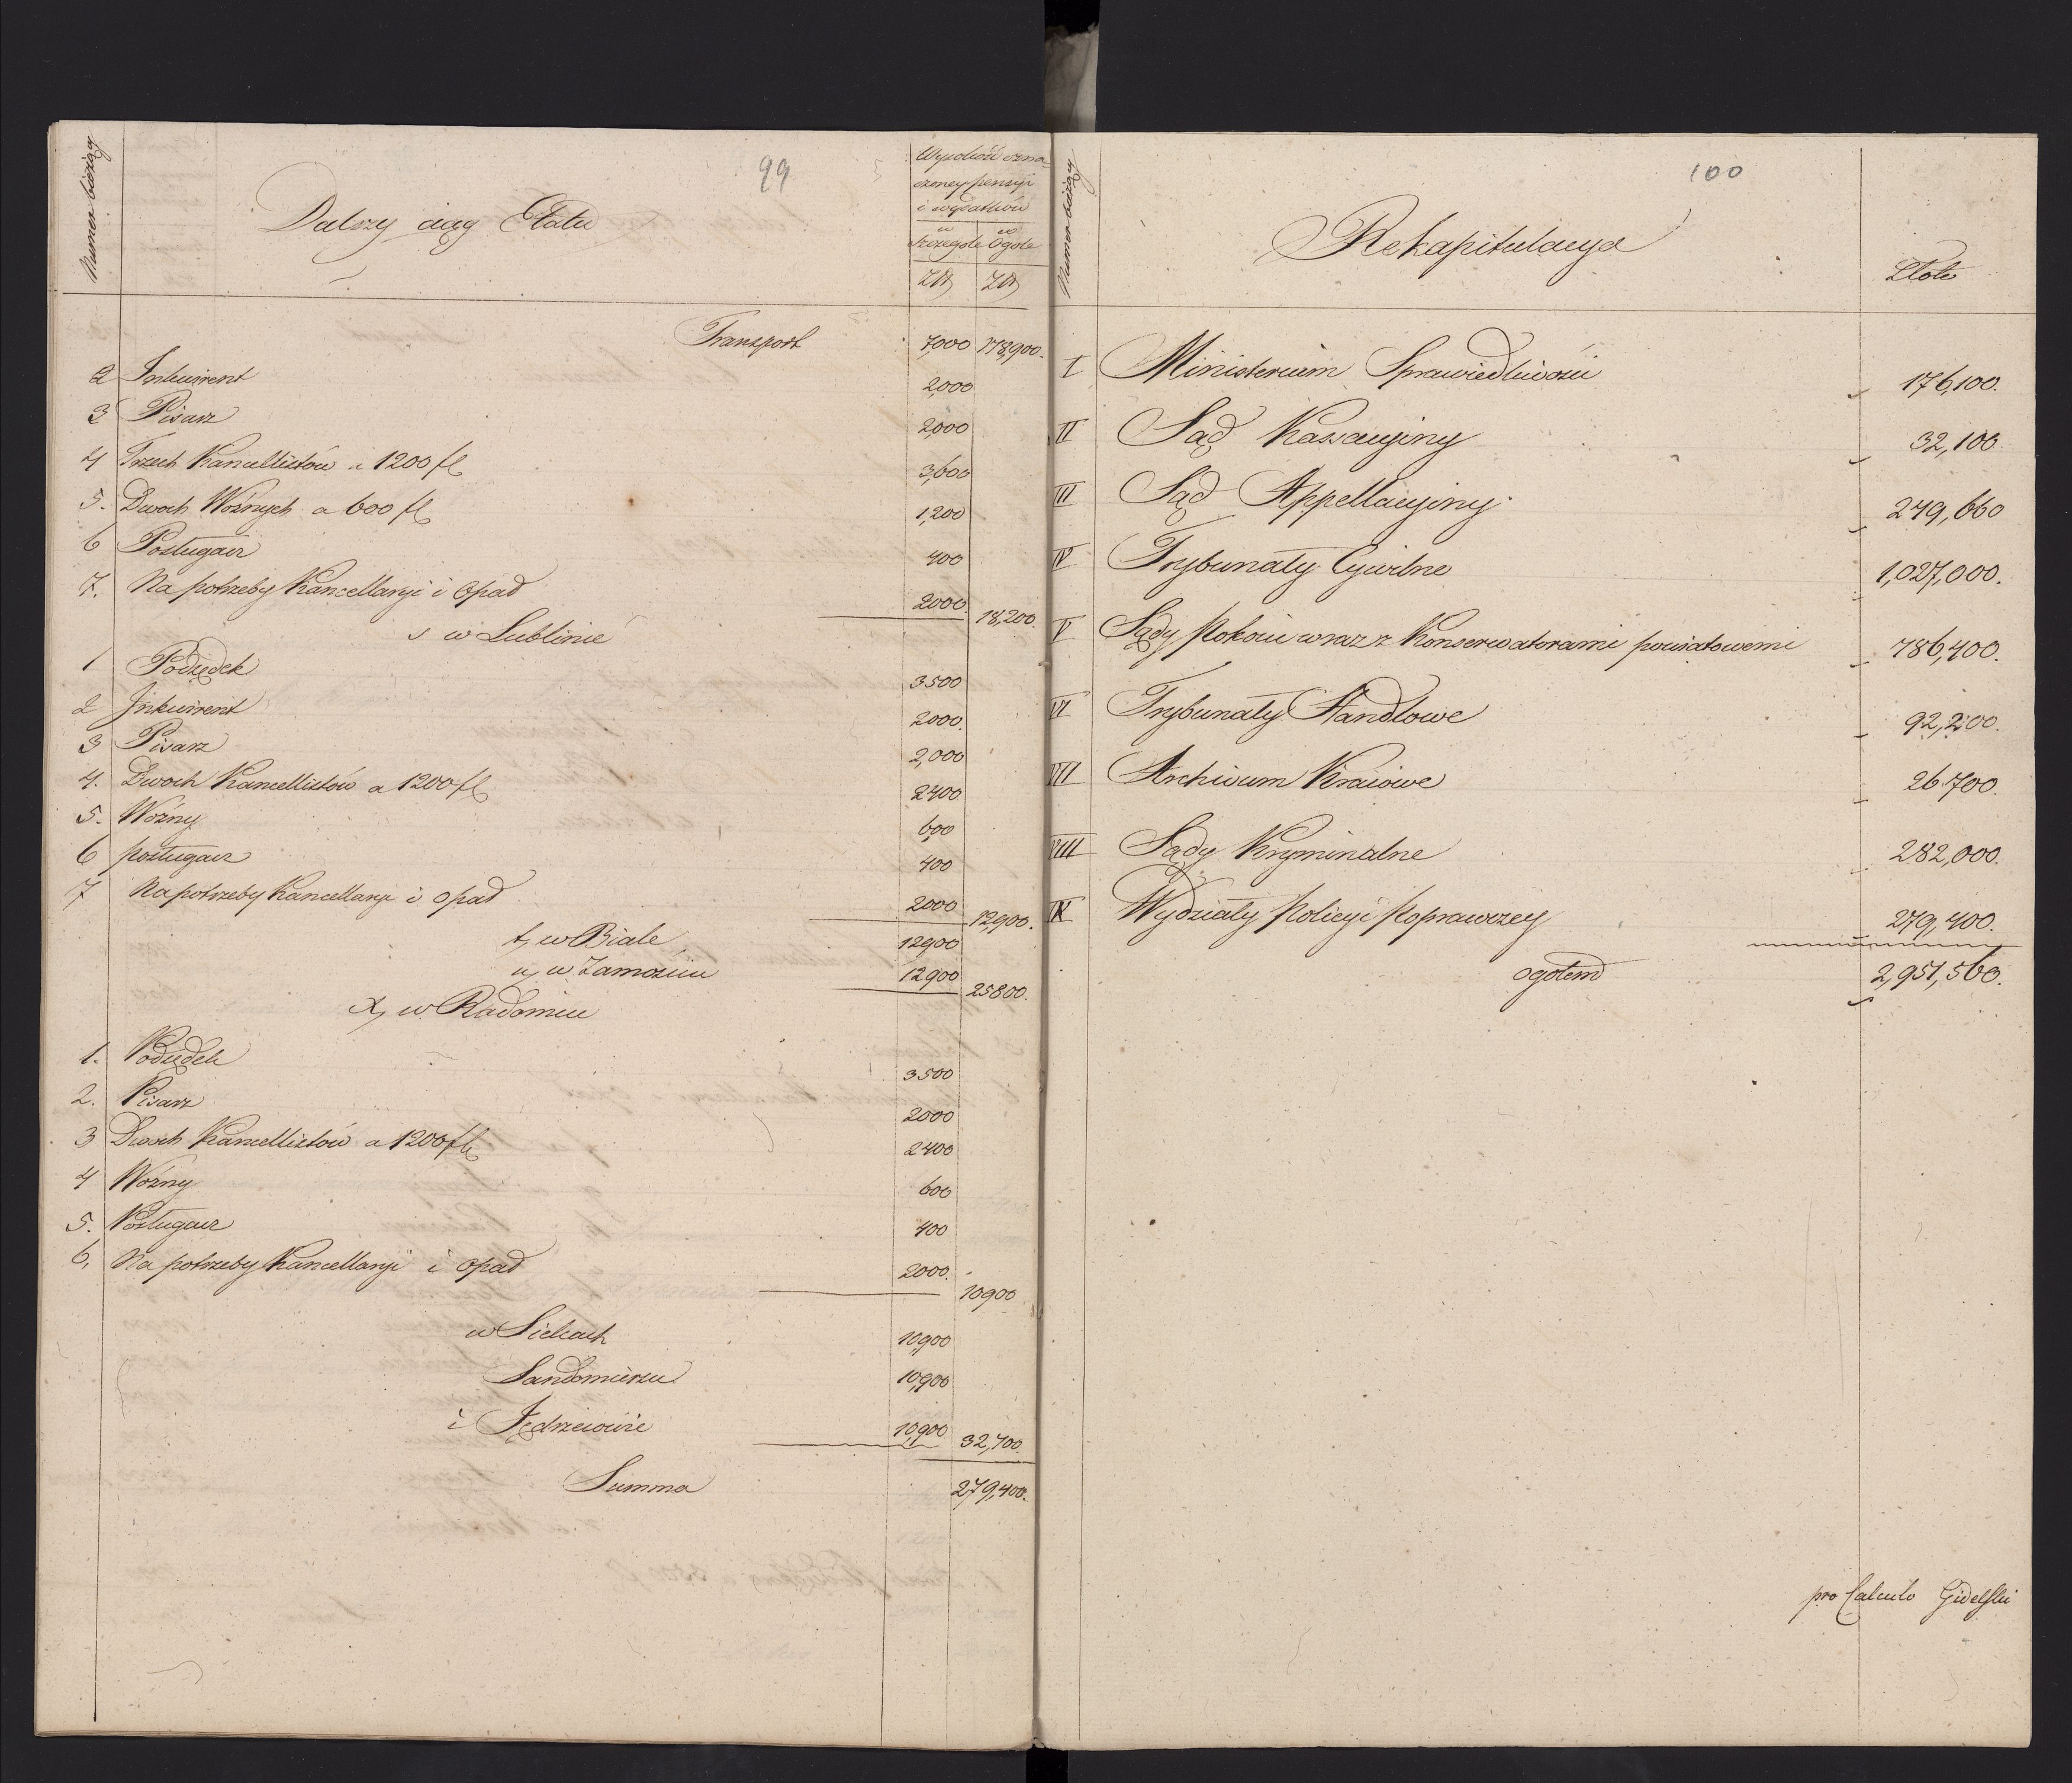 99
Numer bieżący
Dalszy ciąg Etatu
Wysokość ozna-
czoney pensyi
i wydatków
w Szczegole
w Ogole
Złł
Złł
Transport 7,000 178,900.
2 Inkwirent 2,000
3 Pisarz 2,000
4 Trzech Kancellistów a 1200 fl 3,600
5. Dwoch Woźnych a 600 fl 1,200
6 Posługacz 400
7. Na potrzeby Kancellaryi i Opał 2000. 18,200.
s w Lublinie
1 Podsędek 3500
2 Inkwirent 2000.
3 Pisarz 2,000
4. Dwoch Kancellistów a 1200 fl 2400
5. Woźny 600
6 posługacz 400
7 Na potrzeby Kancellaryi i opał 2000 12,900.
t, w Biale 12900
u, w Zamościu 12900 25800.
x, w Radomiu
1. Podsędek 3500
2. Pisarz 2000
3 Dwoch Kancellistów a 1200 fl 2400
4 Woźny 600
5. Posługacz 400
6, Na potrzeby Kancellaryi i opał 2000. 10900
w Kielcach 10,900
Sandomierzu 10,900
i Jędrzeiowie 10,900 32,700.
Summa 279,400.
100
Numer bieżący
Rekapitulacya
Złote
I Ministerium Sprawiedliwości 176,100.
II Sąd Kassacyiny 32,100
III Sąd Appellacyiny 249,660
IV Trybunały Cywilne 1,027,000.
V Sądy Pokoiu wraz z Konserwatorami powiatowemi 786,400.
VI Trybunały Handlowe 92,200.
VII Archiwum Kraiowe 26.700.
VIII Sądy Kryminalne 282,000.
IX Wydziały Policyi Poprawczey 279,400.
ogołem 2,951,560.
pro Calculo Gidelski